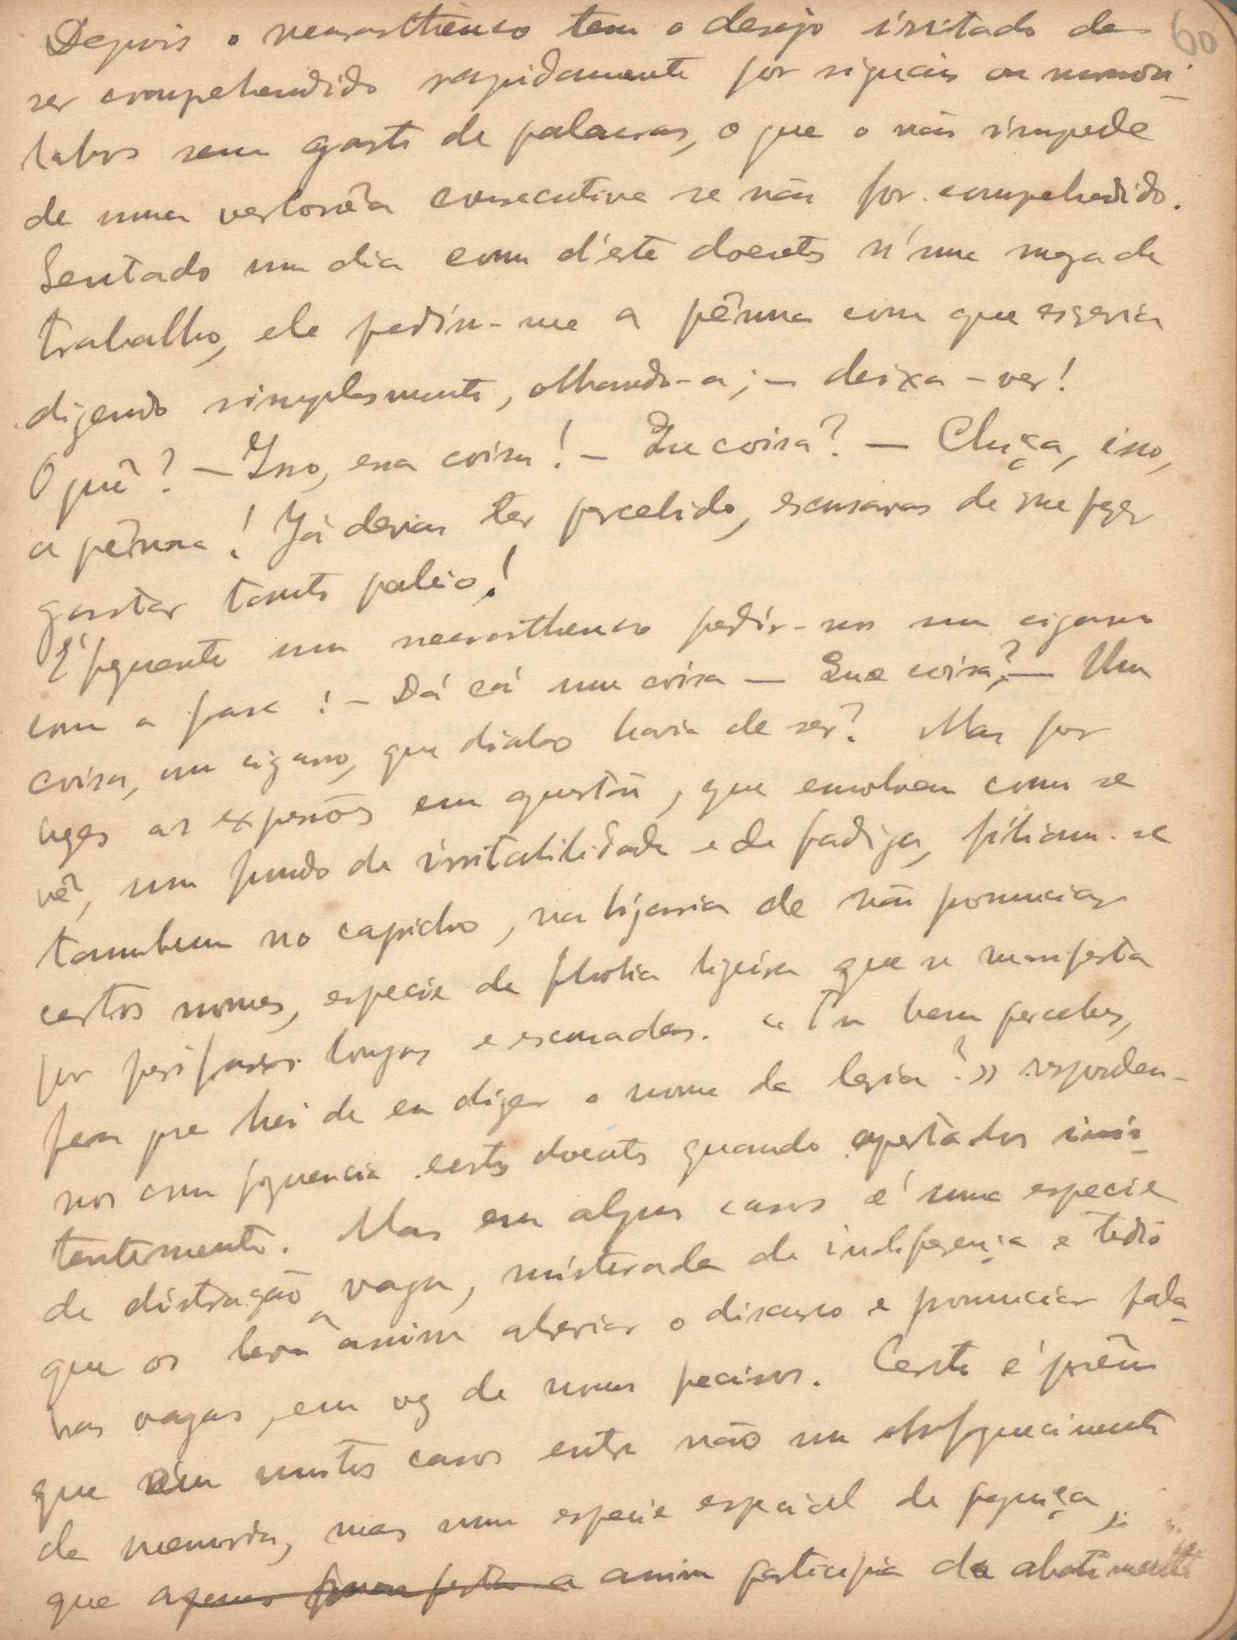 60
Depois o neurasthenico tem o desejo irritado de
ser comprehendido rapidamente por signaes ou monosi-
labos sem gasto de palavras, o que o não impede
de uma verborrêa consecutiva se não for comprehendido.
Sentado um dia com d'este doentes n'uma meza de
trabalho, ele pediu-me a pênna com que escrevia
dizendo simplesmente, olhando-a; — deixa-ver!
O quê? — Isso, essa coisa! — Que coisa? — Chiça, isso,
a pênna! Já devias ter percebido, escusavas de me fazer
gastar tanto palio!
É frequente um neurasthenico pedir-nos um cigarro
com a frase: — Dá cá uma coisa — Que coisa? — Uma
coisa, um cigarro, que diabo havia de ser? Mas por
vezes as expressões em questão, que envolvem como se
vê, um fundo de irritabilidade e de fadiga, filiam-se
tambem no capricho, na bizarria de não pronunciar
certos nomes, especie de phobia ligeira que se manifesta
por perifrases longas e escusadas. «Tu bem percebes,
para que hei de eu dizer o nome da
nos com frequencia estes doentes quando apertados insis-
tentemente. Mas em alguns casos é uma especie
de distração vaga, misturada de indiferença e tedio
que os leva a assim abreviar o discurso e pronunciar pala-
vras vagas, em vez de nomes precisos. Certo é porêm
que em muitos casos entra não um
de memoria, mas uma especie especial de preguiça,
que apenas manifesta a assim participa do abatimento